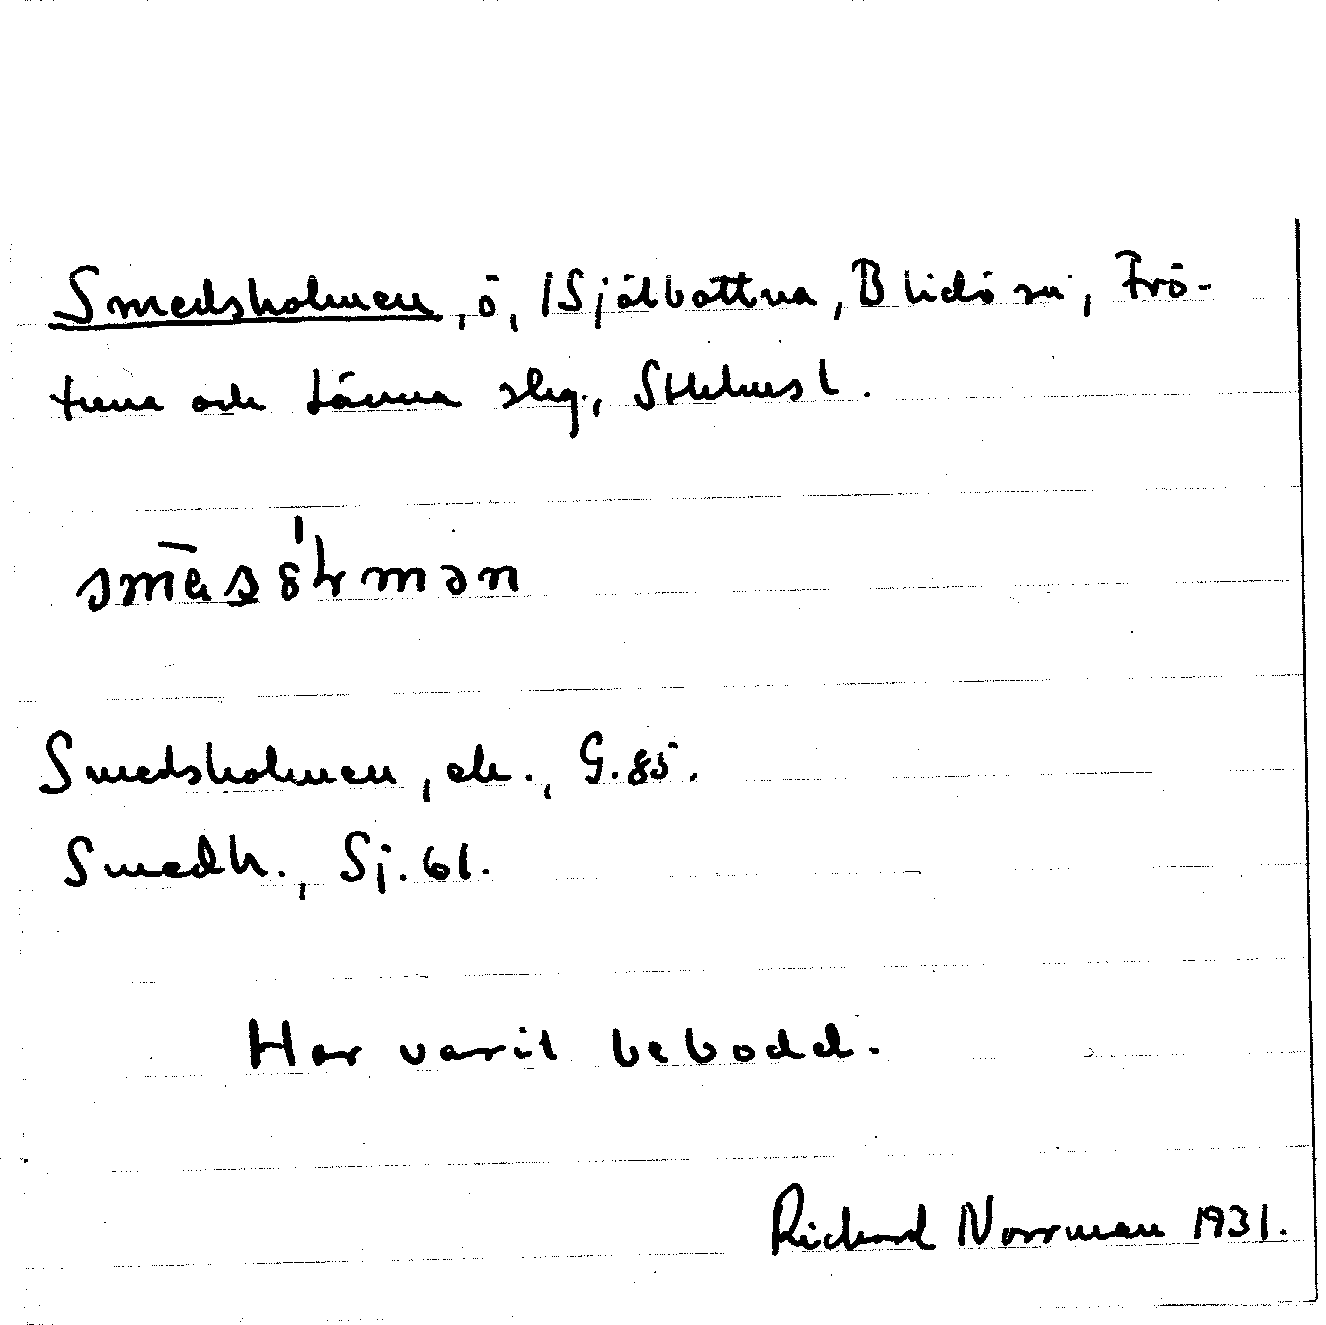 Smedsholmen, ö, /Sjålbottna, Blidö sn, Frö-
tuna och Länna slg., Sthlms l.
Smedsholmen, ek., G.85.
Smedh., Sj.61.
Har varit bebodd.
Richard Norrman 1931.